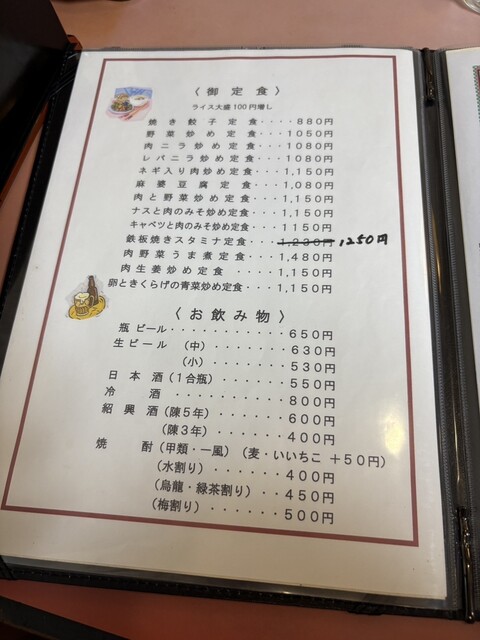 〈 御 定 食 〉
ライス大盛100円増し
焼き餃子定食・・・・880円
野菜炒め定食・・・1050円
肉ニラ炒め定食・・・1080円
レバニラ炒め定食・・・1080円
ネギ入り肉炒め定食・・・1,150円
麻婆豆腐定食・・・1,080円
肉と野菜炒め定食・・・1,150円
ナスと肉のみそ炒め定食・・・1,150円
キャベツと肉のみそ炒め定食・・・1150円
鉄板焼きスタミナ定食・・・1,230円 1250円
肉野菜うま煮定食・・・1,480円
肉生姜炒め定食・・・・1,150円
卵ときくらげの青菜炒め定食・・・1,150円
〈 お 飲 み 物 〉
瓶ビール・・・・・・・・・・・650円
生ビール (中)・・・・・・・・630円
(小)・・・・・・・・530円
日本酒(1合瓶)・・・・・・・550円
冷酒・・・・・・・・・800円
紹興酒(陳5年)・・・・・・・600円
(陳3年)・・・・・・・400円
焼酎(甲類・一風)(麦・いいちこ +50円)
(水割り)・・・・・・400円
(烏龍・緑茶割り)・・450円
(梅割り)・・・・・・500円